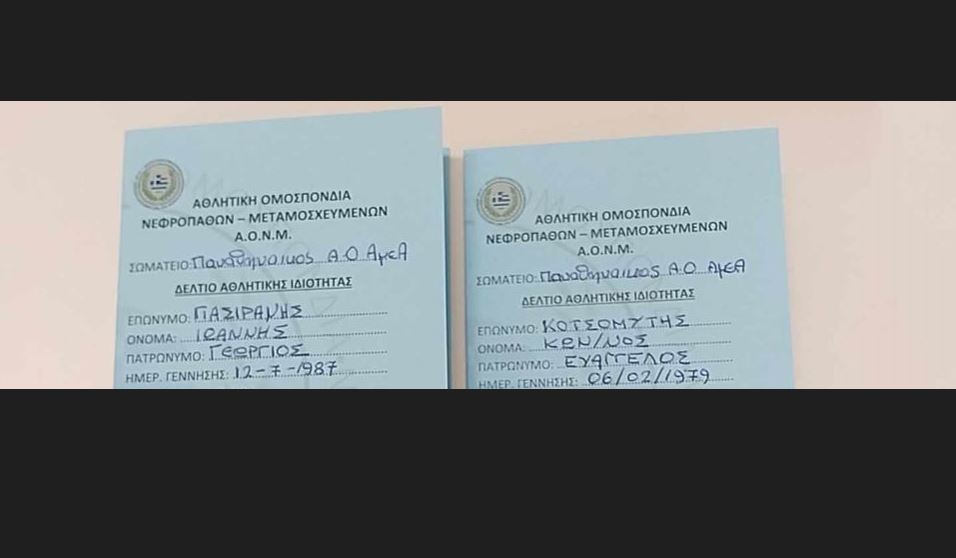 ΑΘΛΗΤΙΚΗ ΟΜΟΣΠΟΝΔΙΑ
ΝΕΦΡΟΠΑΘΩΝ – ΜΕΤΑΜΟΣΧΕΥΜΕΝΩΝ
Α.Ο.Ν.Μ.
ΣΩΜΑΤΕΙΟ: Παναθηναϊκος Α.Ο ΑμεΑ
ΔΕΛΤΙΟ ΑΘΛΗΤΙΚΗΣ ΙΔΙΟΤΗΤΑΣ
ΕΠΩΝΥΜΟ: ΠΑΣΙΡΑΝΗΣ
ΟΝΟΜΑ: ΙΩΑΝΝΗΣ
ΠΑΤΡΩΝΥΜΟ: ΓΕΩΡΓΙΟΣ
ΗΜΕΡ. ΓΕΝΝΗΣΗΣ: 12-7-1987
ΑΘΛΗΤΙΚΗ ΟΜΟΣΠΟΝΔΙΑ
ΝΕΦΡΟΠΑΘΩΝ – ΜΕΤΑΜΟΣΧΕΥΜΕΝΩΝ
Α.Ο.Ν.Μ.
ΣΩΜΑΤΕΙΟ: Παναθηναϊκος Α.Ο. ΑμεΑ
ΔΕΛΤΙΟ ΑΘΛΗΤΙΚΗΣ ΙΔΙΟΤΗΤΑΣ
ΕΠΩΝΥΜΟ: ΚΟΤΣΟΜΥΤΗΣ
ΟΝΟΜΑ: ΚΩΝ/ΝΟΣ
ΠΑΤΡΩΝΥΜΟ: ΕΥΑΓΓΕΛΟΣ
ΗΜΕΡ. ΓΕΝΝΗΣΗΣ: 06/02/1979